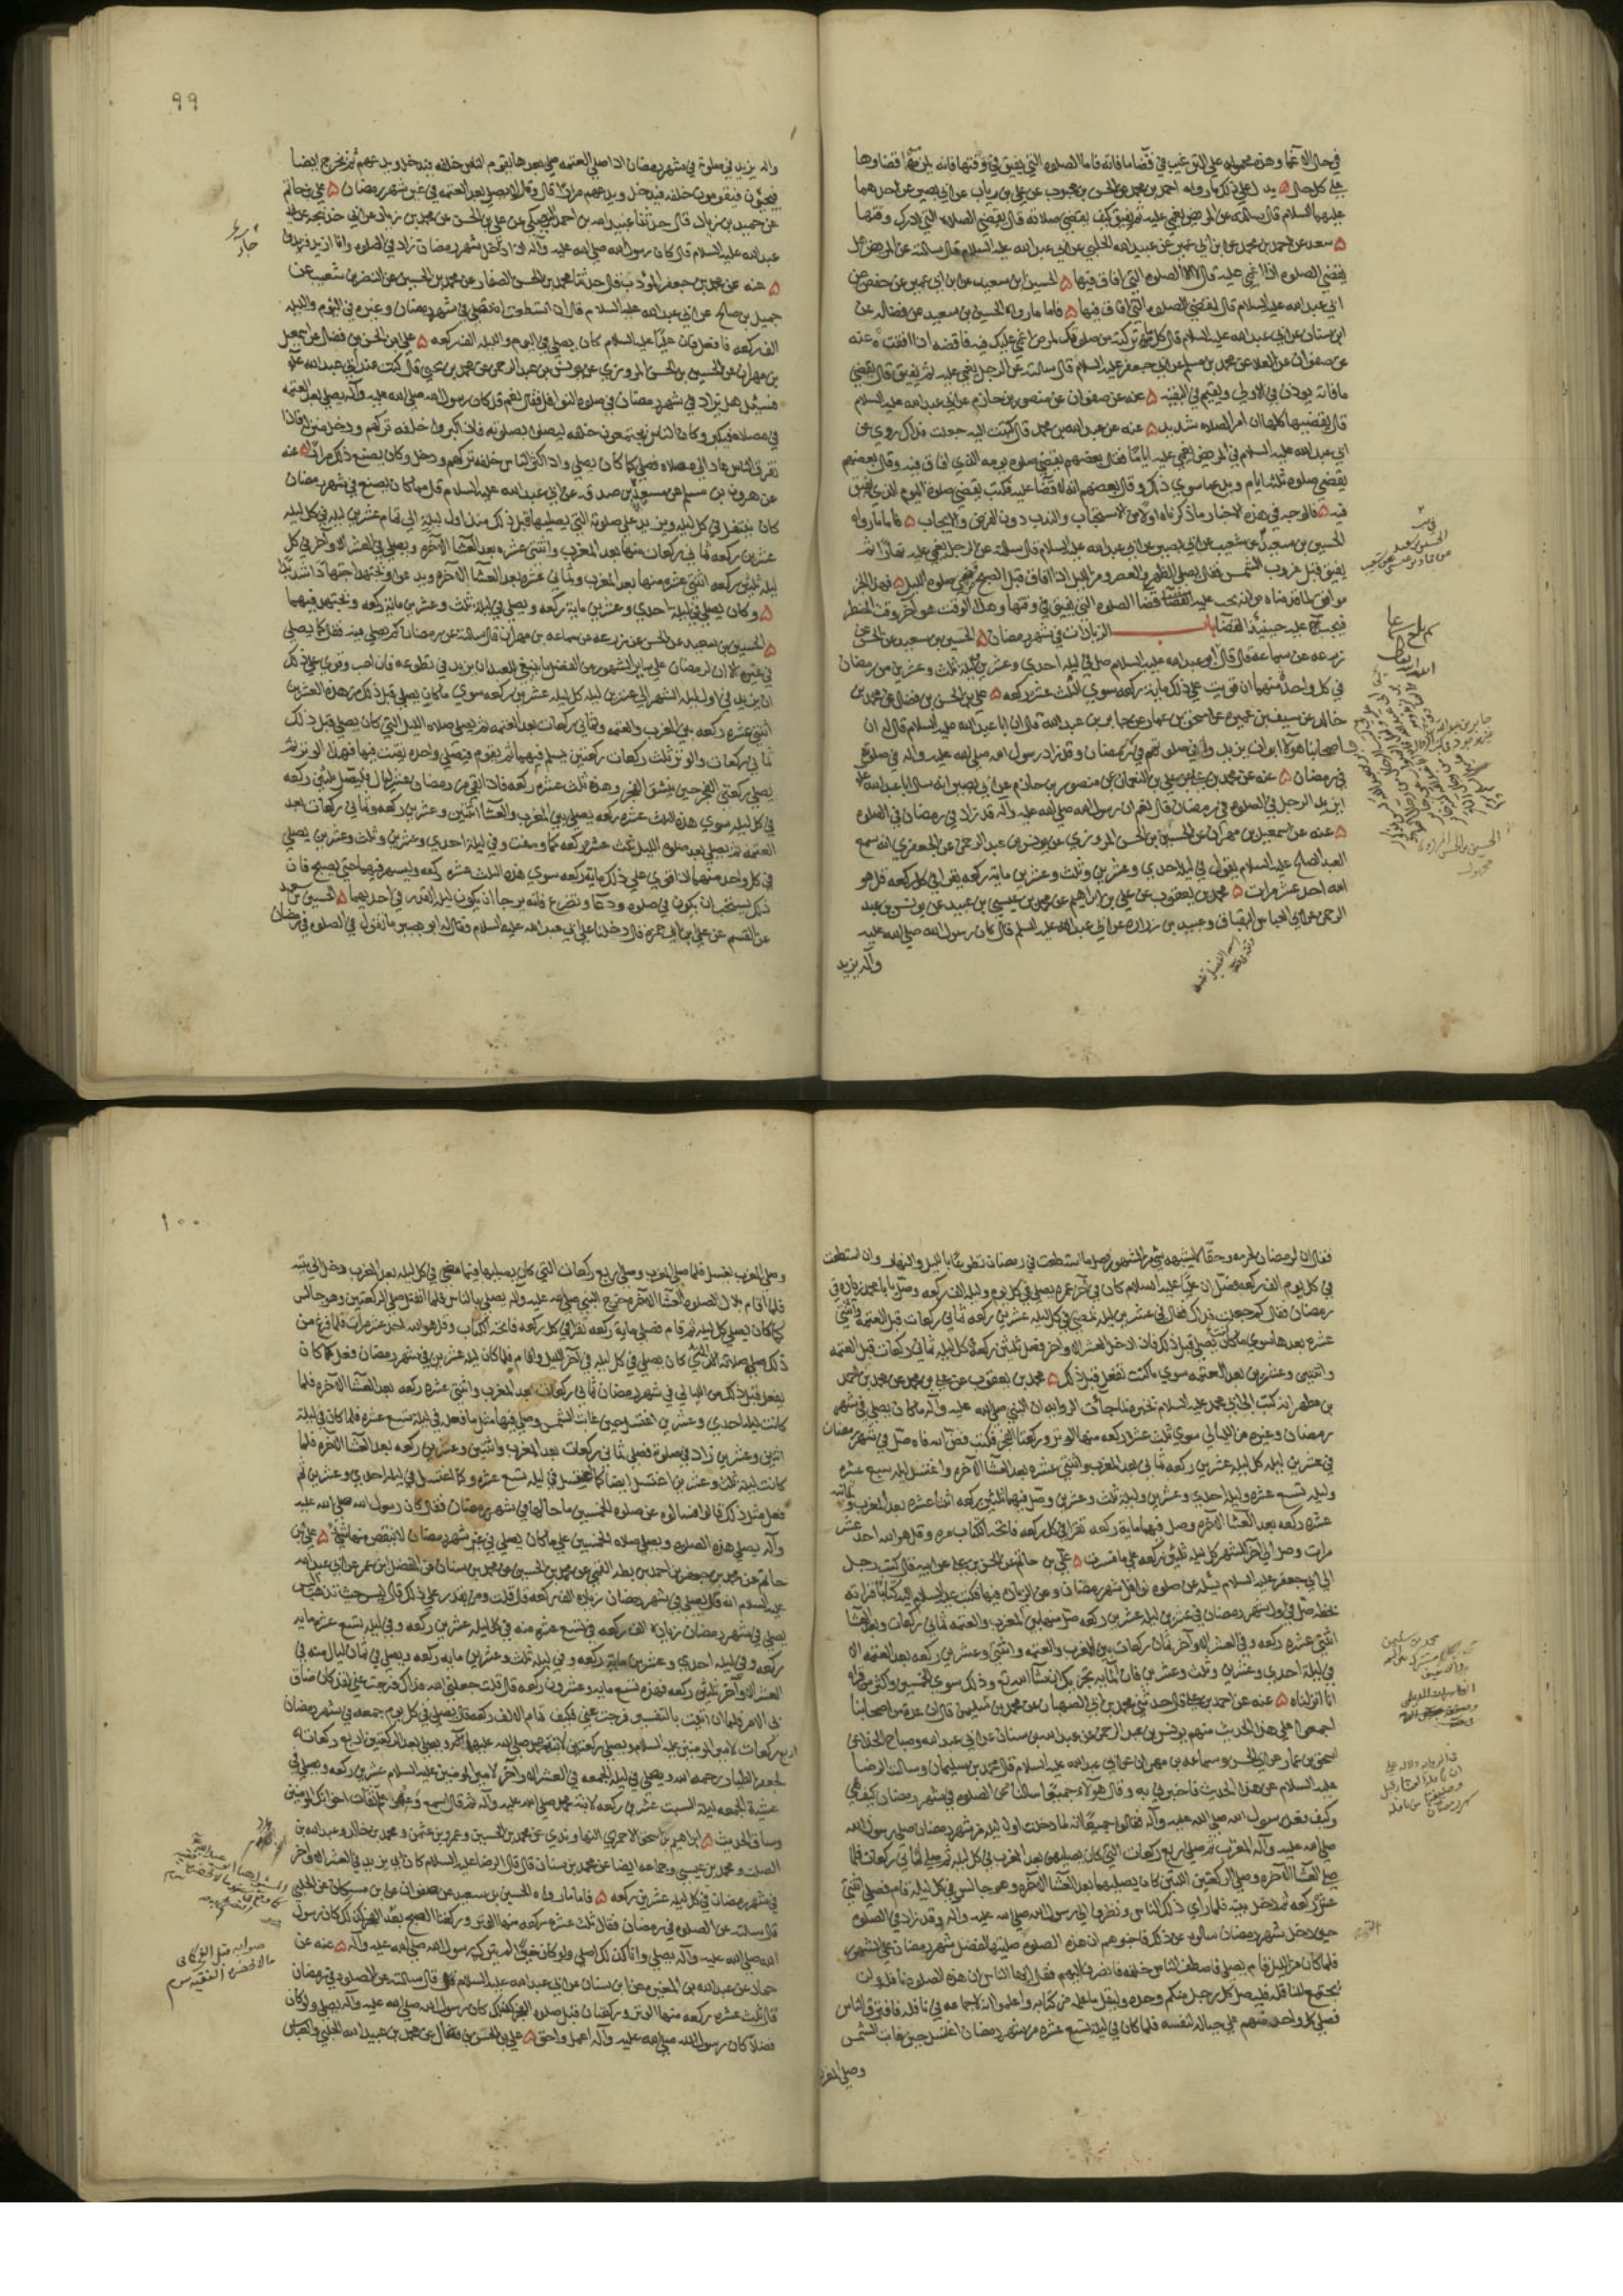 في حال الاغما وهذه محموله علي الترغيب في قضا ما فاته فاما الصلوه التي يفيق في وقتها فانه يلزمه قضاوها
علي كل حال ه يدل علي ذلك ما رواه احمد بن محمد عن الحسن بن محبوب عن علي بن رياب عن ابي بصير عن احدهما
عليهما السلام قال سالته عن المريض يغمي عليه ثم يفيق كيف يقضي صلاته قال يقضي الصلاه التي ادرك وقتها
ه سعد عن احمد بن محمد عن ابن ابي عمير عن عبيد الله الحلبي عن ابي عبد الله عليه السلام قال سالته عن المريض هل
يقضي الصلوه اذا اغمي عليه قال لا الا الصلوه التي افاق فيها ه الحسين بن سعيد عن ابن ابي عمير عن حفص عن
ابي عبد الله عليه السلام قال يقضي الصلوه التي افاق فيها ه فاما ما رواه الحسين بن سعيد عن فضاله عن
ابن سنان عن ابي عبد الله عليه السلام قال كل ما تركته من صلوتك لمرض اغمي عليك فيه فاقضه اذا افقت ه عنه
عن صفوان عن العلا عن محمد بن مسلم عن ابي جعفر عليه السلام قال سالته عن الرجل يغمي عليه ثم يفيق قال يقضي
ما فاته يوذن في الاولي ويقيم في البقيه ه عنه عن صفوان عن منصور بن حازم عن ابي عبد الله عليه السلام
قال يقضيها كلها ان امر الصلاه شديد ه عنه عن عبد الله بن محمد قال كتبت اليه جعلت فداك روي عن
ابي عبد الله عليه السلام في المريض يغمي عليه اياما فقال بعضهم يقضي صلوه يومه الذي افاق فيه وقال بعضهم
يقضي صلوه ثلثه ايام ويدع ما سوي ذلك وقال بعضهم انه لا قضا عليه فكتب يقضي صلوه اليوم الذي يفيق
فيه ه فالوجه في هذه الاخبار ما ذكرناه اولا من الاستحباب والندب دون الفرض والايجاب ه فاما ما رواه
الحسين بن سعيد عن شعيب عن ابي بصير عن ابي عبد الله عليه السلام قال سالته عن الرجل يغمي عليه نهارا ثم
يفيق قبل غروب الشمس فقال يصلي الظهر والعصر ومن الليل اذا افاق قبل الصبح قضي صلوه الليل ه فهذا الخبر
موافق لما قدمناه من انه يجب عليه قضا الصلوه التي يفيق في وقتها وهذا الوقت هو آخر وقت المضطر
فيجب عليه حينيذ القضا باب الزيادات في شهر رمضان ه الحسين بن سعيد عن الحسن عن
زرعه عن سماعه قال قال ابو عبد الله عليه السلام صل في ليله احدي وعشرين وليله ثلث وعشرين من رمضان
في كل واحده منهما ان قويت علي ذلك مايه ركعه سوي الثلث عشره ركعه ه علي بن الحسن بن فضال عن محمد بن
خالد عن سيف بن عميره عن اسحق بن عمار عن جابر بن عبد الله قال ان ابا عبد الله عليه السلام قال له ان
اصحابنا هولا ابوا ان يزيدوا في صلوتهم في رمضان وقد زاد رسول الله صلي الله عليه واله في صلوته
في رمضان ه عنه عن محمد بن علي عن علي بن النعمان عن منصور بن حازم عن ابي بصير انه سال ابا عبد الله عليه
ايزيد الرجل في الصلوه في رمضان قال نعم ان رسول الله صلي الله عليه واله قد زاد في رمضان في الصلوه
ه عنه عن اسمعيل بن مهران عن الحسين بن الحسن المروزي عن يونس بن عبد الرحمن عن الجعفري انه سمع
العبد الصالح عليه السلام يقول في ليله احدي وعشرين وثلث وعشرين مايه ركعه يقرا في كل ركعه قل هو
الله احد عشر مرات ه محمد بن يعقوب عن علي بن ابراهيم عن محمد بن عيسي بن عبيد عن يونس بن عبد
الرحمن عن ابي العباس البقباق وعبيد بن زراره عن ابي عبد الله عليه السلم قال كان رسول الله صلي الله عليه
وآله يزيد
٩٩
واله يزيد في صلوته في شهر رمضان اذا صلي العتمه صلي بعدها يقوم الناس خلفه فيدخل ويدعهم ثم يخرج ايضا
فيجيؤن فيقومون خلفه فيدخل ويدعهم مرارا قال وقال لا يصلي بعد العتمه في غير شهر رمضان ه علي بن حاتم
عن حميد بن زياد قال حدثنا عبيد الله بن احمد النهيكي عن علي بن الحسن عن محمد بن زياد عن ابي خديجه عن ابي
عبد الله عليه السلام قال كان رسول الله صلي الله عليه وآله اذا دخل شهر رمضان زاد في الصلوه وانا ازيد فزيدوا
ه عنه عن محمد بن جعفر المؤدب قال حدثنا محمد بن الحسن الصفار عن محمد بن الحسين عن النضر بن شعيب عن
جميل بن صالح عن ابي عبد الله عليه السلام قال ان استطعت ان تصلي في شهر رمضان وغيره في اليوم والليله
الف ركعه فافعل فان عليا عليه السلام كان يصلي في اليوم والليله الف ركعه ه علي بن الحسن بن فضال عن اسمعيل
بن مهران عن الحسين بن الحسن المروزي عن يونس بن عبد الرحمن عن محمد بن يحيي قال كنت عند ابي عبد الله عليه
فسئل هل يزاد في شهر رمضان في صلوه النوافل فقال نعم قد كان رسول الله صلي الله عليه وآله يصلي بعد العتمه
في مصلاه فيكبر وكان الناس يجتمعون خلفه ليصلوا بصلوته فاذا كثروا خلفه تركهم ودخل منزله فاذا
تفرق الناس عاد الي مصلاه فصلي كما كان يصلي واذا كثر الناس خلفه تركهم ودخل وكان يصنع ذلك مرارا ه عنه
عن هرون بن مسلم عن مسعده بن صدقه عن ابي عبد الله عليه السلام قال مما كان يصنع في شهر رمضان
كان يتنفل في كل ليله ويزيد علي صلوته التي يصليها قبل ذلك منذ اول ليله الي تمام عشرين ليله في كل ليله
عشرين ركعه ثماني ركعات منها بعد المغرب واثنتي عشره بعد العشا الآخره ويصلي في العشر الاواخر في كل
ليله ثلثين ركعه اثنتي عشره منها بعد المغرب وثماني عشره بعد العشا الآخره ويدعو ويجتهد اجتهادا شديدا
ه وكان يصلي في ليله احدي وعشرين مايه ركعه ويصلي في ليله ثلث وعشرين مايه ركعه ويجتهد فيهما
ه الحسين بن سعيد عن الحسن عن زرعه عن سماعه بن مهران قال سالته عن رمضان كم يصلي فيه فقال كما يصلي
في غيره الا ان لرمضان علي ساير الشهور من الفضل ما ينبغي للعبد ان يزيد في تطوعه فان احب وقوي علي ذلك
ان يزيد في اول ليله الشهر الي عشرين ليله كل ليله عشرين ركعه سوي ما كان يصلي قبل ذلك من هذه العشرين
اثنتي عشره ركعه بين المغرب والعتمه وثماني ركعات بعد العتمه ثم يصلي صلاه الليل التي كان يصلي قبل ذلك
ثماني ركعات والوتر ثلث ركعات ركعتين يسلم فيهما ثم يقوم فيصلي واحده يقنت فيها فهذا الوتر ثم
يصلي ركعتي الفجر حين ينشق الفجر وهذه ثلث عشره ركعه فاذا بقي من رمضان عشر ليال فليصل ثلثين ركعه
في كل ليله سوي هذه الثلث عشره ركعه يصلي بين المغرب والعشا اثنتين وعشرين ركعه وثماني ركعات بعد
العتمه ثم يصلي بعد صلوه الليل ثلث عشره ركعه كما وصفت وفي ليله احدي وعشرين وثلث وعشرين يصلي
في كل واحده منهما اذا قوي علي ذلك مايه ركعه سوي هذه الثلث عشره ركعه وليسهر فيهما حتي يصبح فان
ذلك يستحب ان يكون في صلوه ودعا وتضرع فانه يرجا ان يكون ليله القدر في احديهما ه الحسين بن سعيد
عن القسم عن علي بن ابي حمزه قال دخلنا علي ابي عبد الله عليه السلام فقال له ابو بصير ما تقول في الصلوه في رمضان
فقال ان لرمضان لحرمه وحقا لا يشبهه شي من الشهور صل ما استطعت في رمضان تطوعا بالليل والنهار وان استطعت
في كل يوم الف ركعه فصل ان عليا عليه السلام كان في آخر عمره يصلي في كل يوم وليله الف ركعه وصل يا با محمد زياده في
رمضان فقال كم جعلت فداك فقال في عشرين ليله تمضي في كل ليله عشرين ركعه ثماني ركعات قبل العتمه واثنتي
عشره بعدها سوي ما كنت تصلي قبل ذلك فاذا دخل العشر الاواخر فصل ثلثين ركعه كل ليله ثماني ركعات قبل العتمه
واثنتين وعشرين بعد العتمه سوي ما كنت تفعل قبل ذلك ه محمد بن يعقوب عن علي بن محمد عن محمد بن احمد
بن مطهر انه كتب الي ابي محمد عليه السلام يخبره بما جاءت الروايه ان النبي صلي الله عليه وآله ما كان يصلي في شهر
رمضان وغيره من الليالي سوي ثلث عشره ركعه منها الوتر وركعتا الفجر فكتب فض الله فاه صل في شهر رمضان
في عشرين ليله كل ليله عشرين ركعه ثماني بعد المغرب واثنتي عشره بعد العشا الآخره واغتسل ليله سبع عشره
وليله تسع عشره وليله احدي وعشرين وليله ثلث وعشرين وصل فيهما ثلثين ركعه اثنتا عشره بعد المغرب وثماني
عشره ركعه بعد العشا الآخره وصل فيهما مايه ركعه تقرا في كل ركعه فاتحه الكتاب مره وقل هو الله احد عشر
مرات وصل الي آخر الشهر كل ليله ثلثين ركعه علي ما فسرت ه علي بن حاتم عن الحسن بن علي عن ابيه قال كتب رجل
الي ابي جعفر عليه السلام يسئله عن صلوه نوافل شهر رمضان وعن الزياده فيها فكتب عليه السلام اليه كتابا قراته
بخطه صل في اول شهر رمضان في عشرين ليله عشرين ركعه صل منها بين المغرب والعتمه ثماني ركعات وبعد العشا
اثنتي عشره ركعه وفي العشر الاواخر ثمان ركعات بين المغرب والعتمه واثنتين وعشرين ركعه بعد العتمه الا
في ليله احدي وعشرين وثلث وعشرين فان المايه تجزيك ان شا الله تع وذلك سوي الخمسين واكثر من قراه
انا انزلناه ه عنه عن احمد بن علي قال حدثني محمد بن ابي الصهبان عن محمد بن سليمن قال ان عده من اصحابنا
اجمعوا علي هذا الحديث منهم يونس بن عبد الرحمن عن عبد الله بن سنان عن ابي عبد الله وصباح الحذا عن
اسحق بن عمار عن ابي الحسن وسماعه بن مهران عن ابي عبد الله عليه السلام قال محمد بن سليمان وسالت الرضا
عليه السلام عن هذا الحديث فاخبرني به وقال هولاء جميعا سالنا عن الصلوه في شهر رمضان كيف هي
وكيف فعل رسول الله صلي الله عليه وآله فقالوا جميعا انه لما دخلت اول ليله من شهر رمضان صلي رسول الله
صلي الله عليه وآله المغرب ثم صلي اربع ركعات التي كان يصليهن بعد المغرب في كل ليله ثم صلي ثماني ركعات فلما
صلي العشا الآخره وصلي الركعتين اللتين كان يصليهما بعد العشا الآخره وهو جالس في كل ليله قام فصلي اثنتي
عشره ركعه ثم دخل بيته فلما راي ذلك الناس ونظروا الي رسول الله صلي الله عليه وآله وقد زاد في الصلوه
حين دخل شهر رمضان سالوه عن ذلك فاخبرهم ان هذه الصلوه صليتها لفضل شهر رمضان علي الشهور
فلما كان من الليل قام يصلي فاصطف الناس خلفه فانصرف اليهم فقال ايها الناس ان هذه الصلوه نافله ولن
يجتمع للنافله فليصل كل رجل منكم وحده وليقل ما علمه من كتابه واعلموا انه لا جماعه في نافله فافترق الناس
فصلي كل واحد منهم علي حياله لنفسه فلما كان في ليله تسع عشره من شهر رمضان اغتسل حين غابت الشمس
وصلي المغرب
١٠٠
وصلي المغرب بغسل فلما صلي المغرب وصلي اربع ركعات التي كان يصليها فيما مضي في كل ليله بعد المغرب دخل الي بيته
فلما اقام بلال الصلوه العشا الآخره خرج النبي صلي الله عليه وآله فصلي بالناس فلما انفتل صلي الركعتين وهو جالس
كما كان يصلي كل ليله ثم قام فصلي مايه ركعه تقرا في كل ركعه فاتحه الكتاب وقل هو الله احد عشر مرات فلما فرغ من
ذلك صلي صلاته التي كان يصلي في كل ليله في آخر الليل واوتر فلما كان ليله عشرين من شهر رمضان فعل كما كان
يفعل قبل ذلك من الليالي في شهر رمضان ثماني ركعات بعد المغرب واثنتي عشره ركعه بعد العشا الآخره فلما
كانت ليله احدي وعشرين اغتسل حين غابت الشمس وصلي فيها مثل ما فعل في ليله تسع عشره فلما كان في ليله
اثنين وعشرين زاد في صلوته فصلي ثماني ركعات بعد المغرب واثنتين وعشرين ركعه بعد العشا الآخره فلما
كانت ليله ثلث وعشرين اغتسل ايضا كما اغتسل في ليله تسع عشره وكما اغتسل في ليله احدي وعشرين ثم
فعل مثل ذلك قالوا فسالوه عن صلوه الخمسين ما حالها في شهر رمضان فقال كان رسول الله صلي الله عليه
وآله يصلي هذه الصلوه ويصلي صلاه الخمسين علي ما كان يصلي في غير شهر رمضان لا ينقص منها شيئا ه علي بن
حاتم عن محمد بن جعفر بن احمد بن بطه القمي عن محمد بن الحسين عن محمد بن سنان عن المفضل بن عمر عن ابي عبد الله
عليه السلام انه قال يصلي في شهر رمضان زياده الف ركعه قال قلت ومن يقدر علي ذلك قال ليس حيث تذهب اليس
يصلي في شهر رمضان زياده الف ركعه في تسع عشره منه في كل ليله عشرين ركعه وفي ليله تسع عشره مايه
ركعه وفي ليله احدي وعشرين مايه ركعه وفي ليله ثلث وعشرين مايه ركعه ويصلي في ثمان ليال منه في
العشر الاواخر ثلثين ركعه فهذه تسع مايه وعشرون ركعه قال قلت جعلني الله فداك فرجت عني لقد كان ضاق
بي الامر فلما ان اتيت بالتفسير فرجت عني فكيف تمام الالف ركعه قال يصلي في كل يوم جمعه في شهر رمضان
اربع ركعات لامير المومنين عليه السلام ويصلي ركعتين لابنه محمد صلي الله عليهما وآله ويصلي بعد الركعتين اربع ركعات
لجعفر الطيار رحمه الله ويصلي في ليله الجمعه في العشر الاواخر لامير المومنين عليه السلام عشرين ركعه ويصلي في
عشيه الجمعه ليله السبت عشرين ركعه لابنه محمد صلي الله عليه وآله ثم قال اسمع وعه وعلم ثقات اخوانك المومنين
وساق الحديث ه ابراهيم بن اسحق الاحمري النهاوندي عن محمد بن الحسين وعمرو بن عثمن ومحمد بن خالد وعبد الله بن
الصلت ومحمد بن عيسي وجماعه ايضا عن محمد بن سنان قال قال الرضا عليه السلام كان ابي يزيد في العشر الاواخر
في شهر رمضان في كل ليله عشرين ركعه ه فاما ما رواه الحسين بن سعيد عن صفوان عن ابن مسكان عن الحلبي
قال سالته عن الصلوه في رمضان فقال ثلث عشره ركعه منها الوتر وركعتا الصبح بعد الفجر كذلك كان رسول
الله صلي الله عليه وآله يصلي وانا كذلك اصلي ولو كان خيرا لم يتركه رسول الله صلي الله عليه وآله ه عنه عن
حماد عن عبد الله بن المغيره عن ابن سنان عن ابي عبد الله عليه السلام قال سالته عن الصلوه في رمضان
قال ثلث عشره ركعه منها الوتر وركعتان قبل صلوه الفجر كذلك كان رسول الله صلي الله عليه وآله يصلي ولو كان
فضلا كان رسول الله صلي الله عليه وآله اعمل واحق ه علي بن الحسن بن فضال عن محمد بن عبيد الله الحلبي والعباس